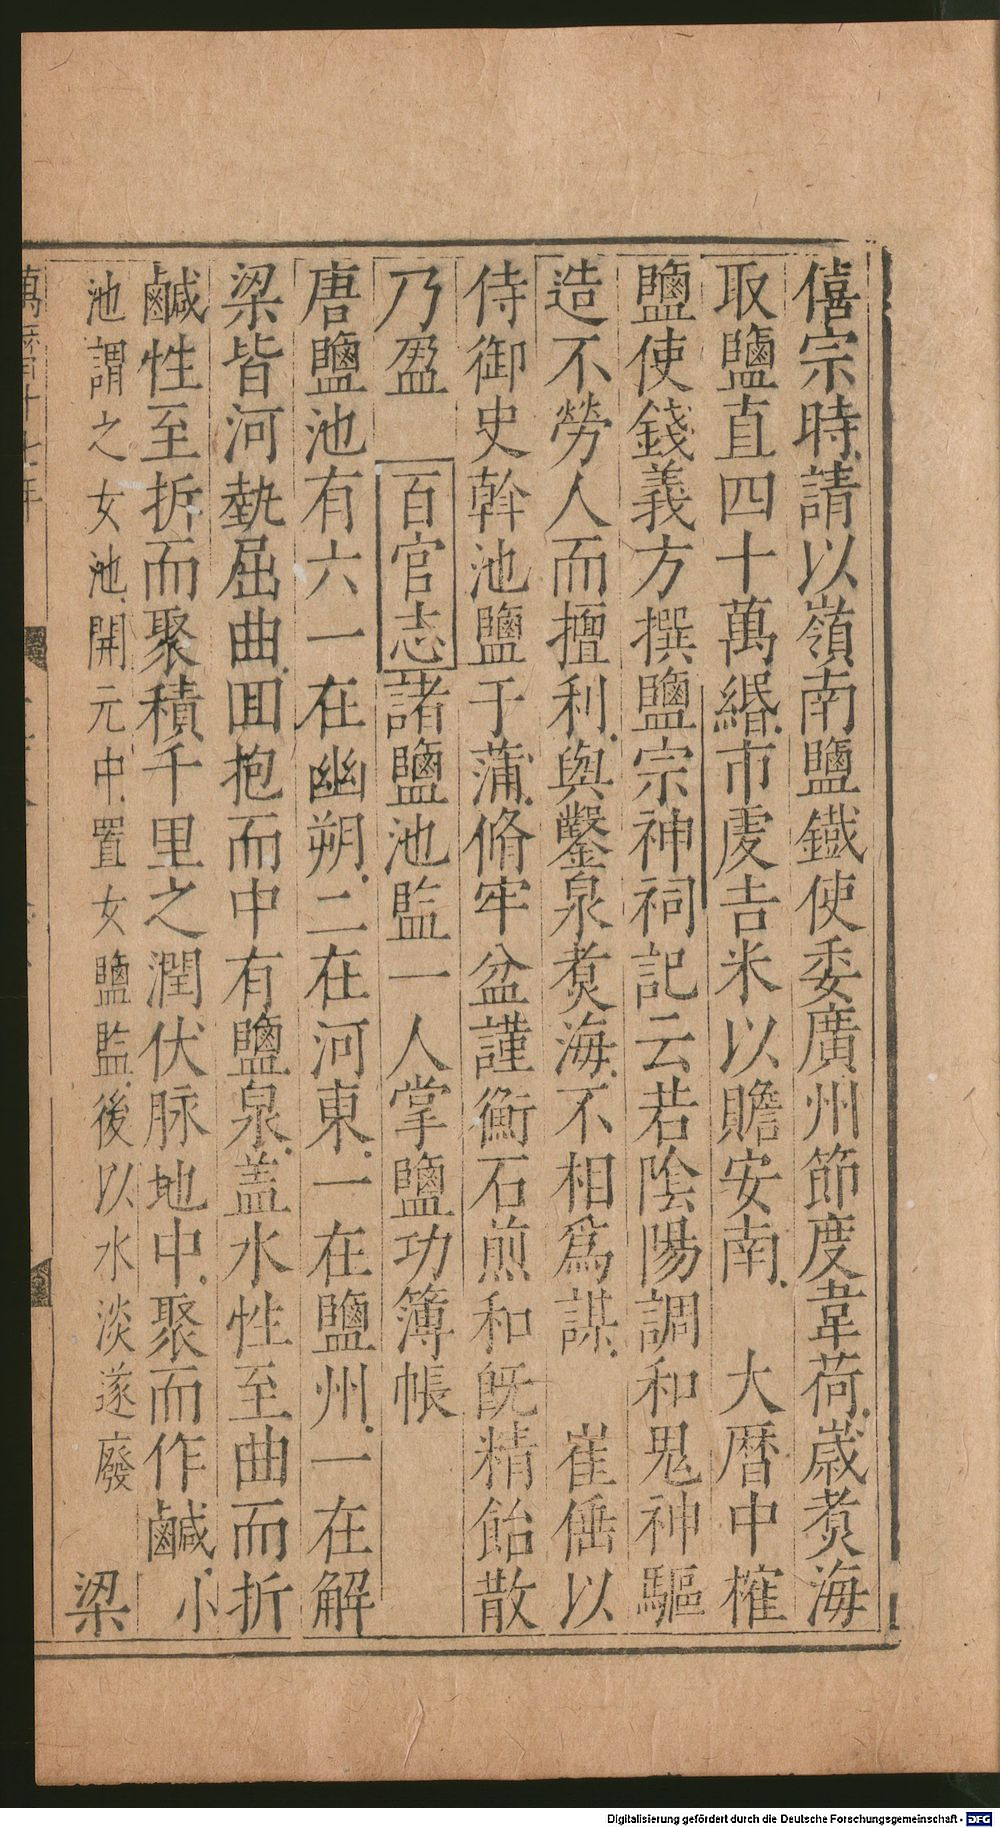 僖宗時請以嶺南鹽鐵使委廣州節度韋荷歳煑海
取鹽直四十萬緡市䖍吉米以贍安南　大暦中榷
鹽使錢義方撰鹽宗神祠記云若陰陽調和鬼神驅
造不勞人而擅利與鑿泉煑海不相爲謀　崔倕以
侍御史斡池鹽于蒲脩牢盆謹衡石煎和旣精飴散
乃盈　百官志諸鹽池監一人掌鹽功簿帳
唐鹽池有六一在幽朔二在河東一在鹽州一在解
梁皆河埶屈曲囬抱而中有鹽泉盖水性至曲而折
鹹性至折而聚積千里之潤伏脉地中聚而作鹹　小
池謂之女池開元中置女鹽監後以水淡遂廢　梁
Digitalisierung gefördert durch die Deutsche Forschungsgemeinschaft - DFG